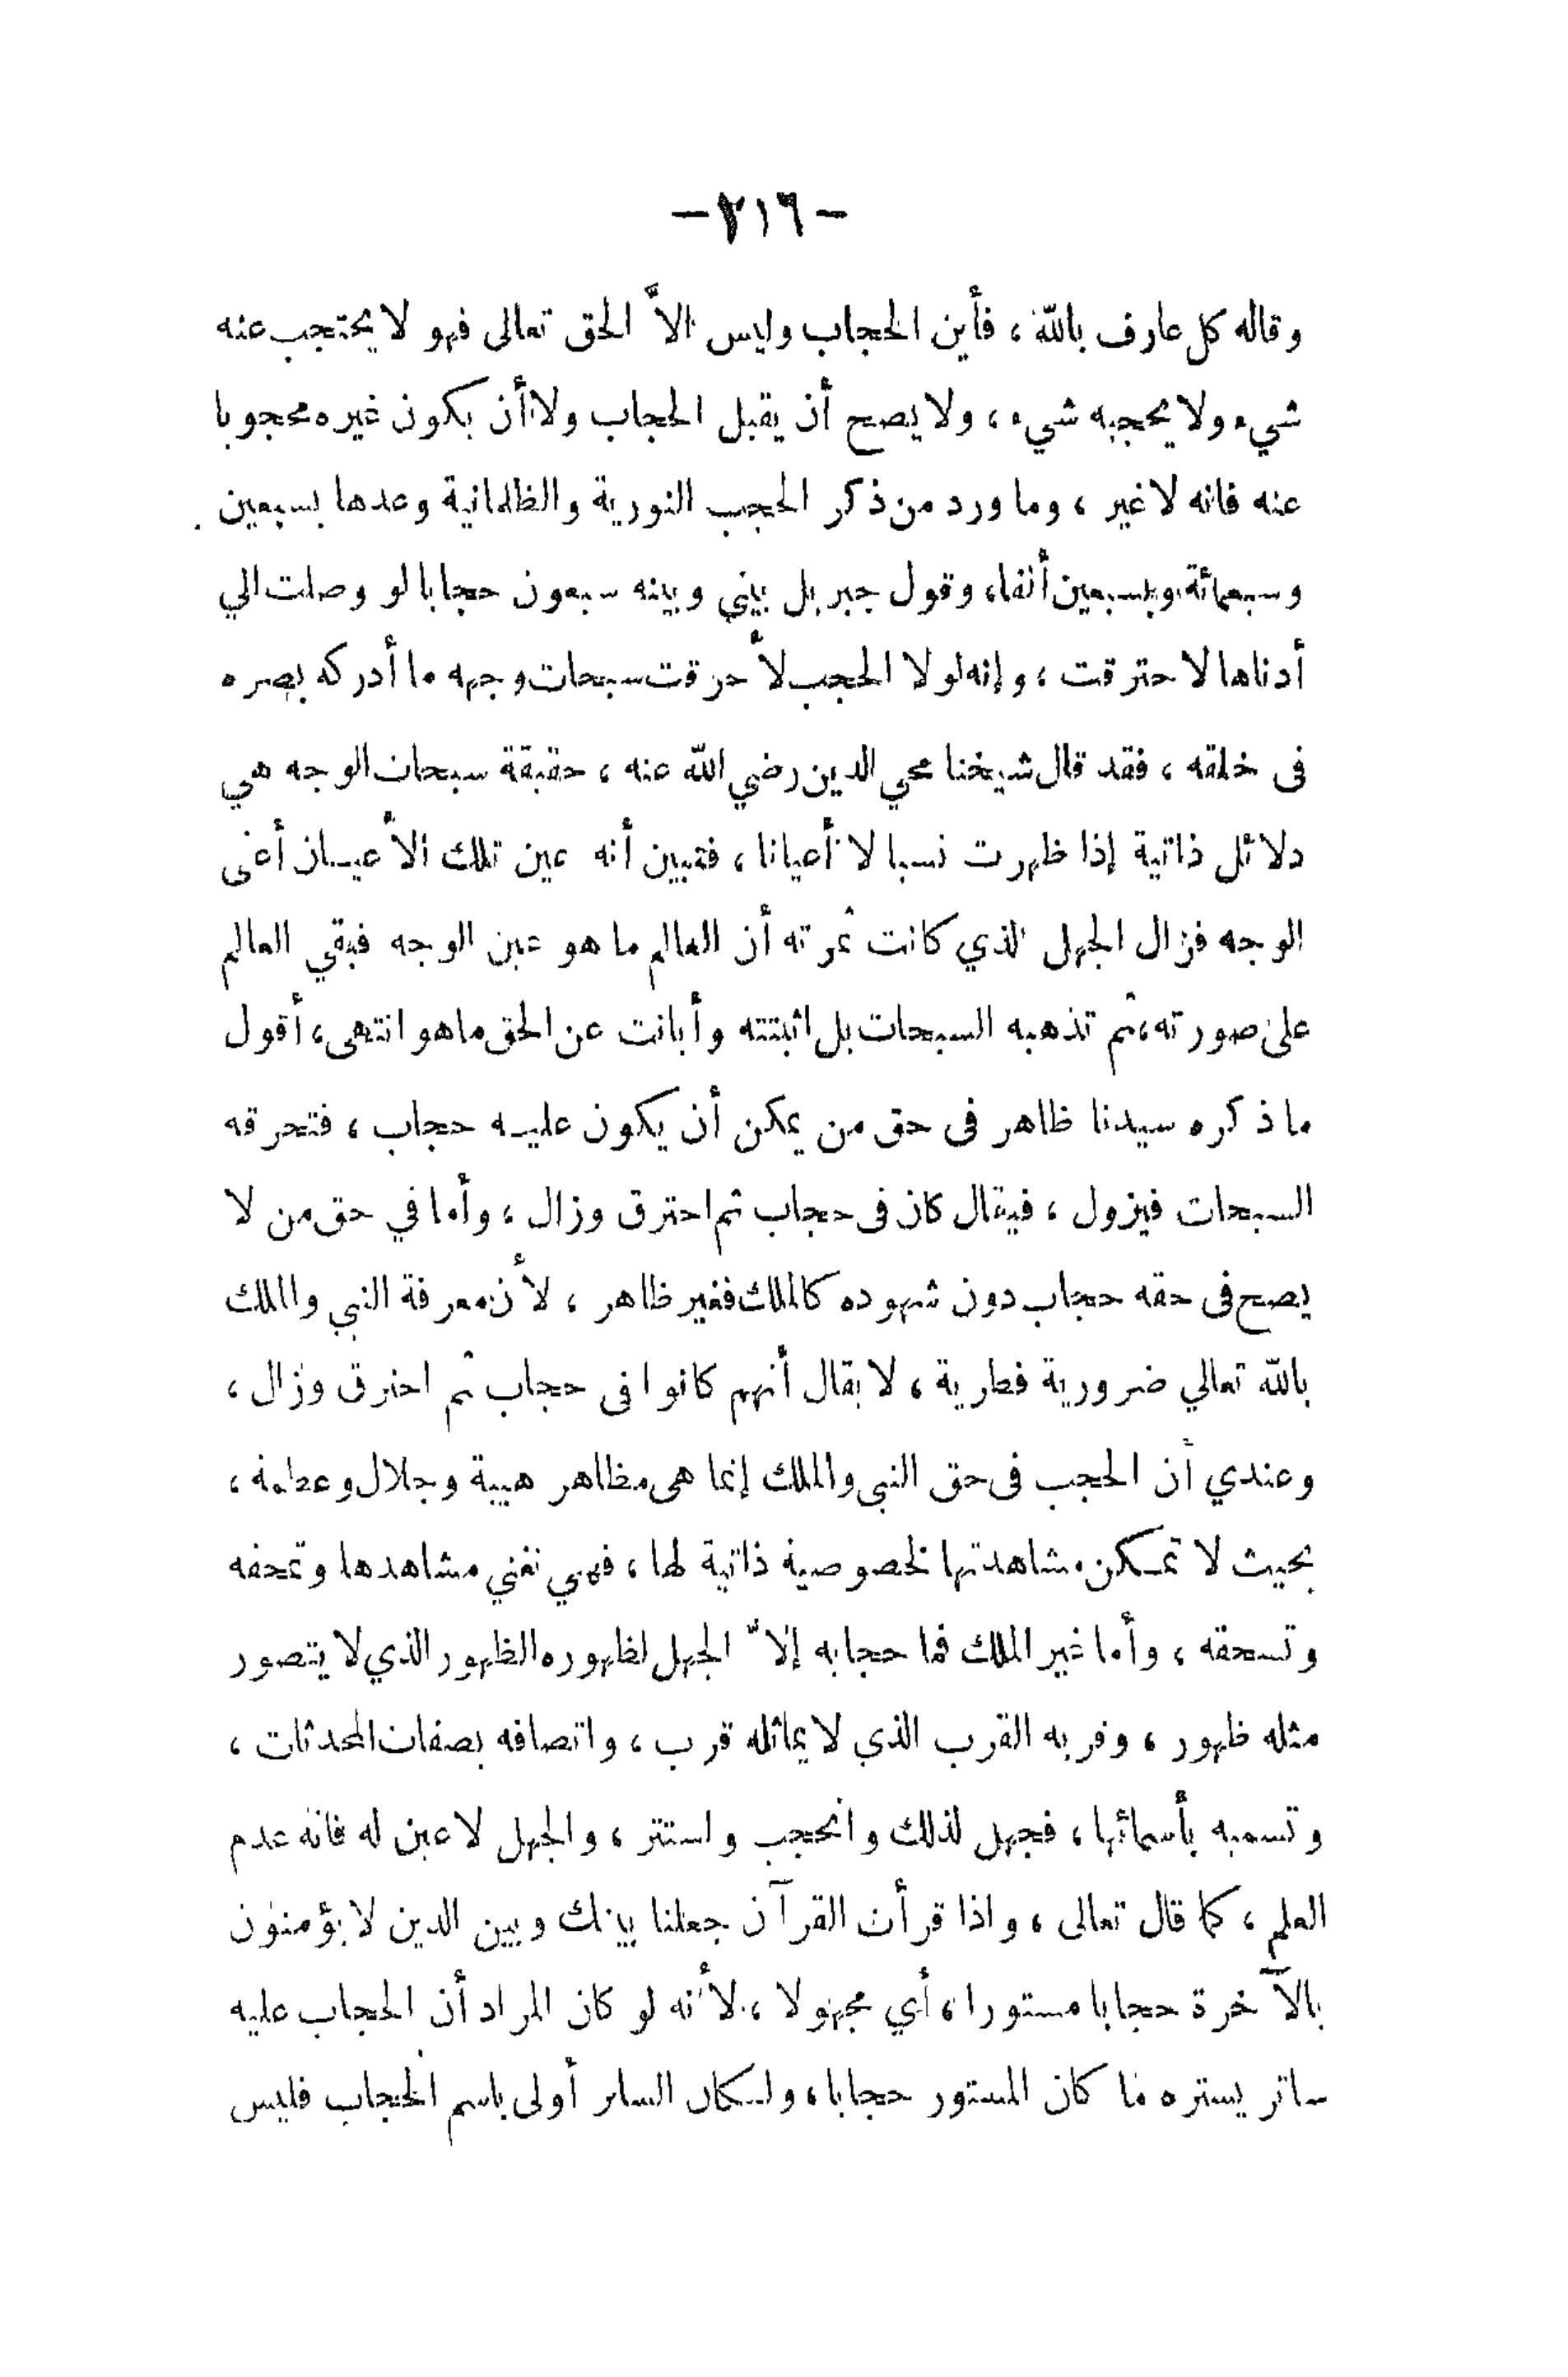 -٢١٦-
وقاله كل عارف بالله ، فأين الحجاب وليس الاَّ الحق تعالى فهو لا يحتجب عنه
شيء ولا يحجبه شيء ، ولا يصح أن يقبل الحجاب ولا أن يكون غيره محجوبا
عنه فانه لا غير ، وما ورد من ذكر الحجب النورية والظلمانية وعدها بسبعين
وسبعمائة وبسبعين أنفا، وقول جبريل بيني وبينه سبعون حجابا لو وصلت الي
أدناها لاحترقت ، وإنه لولا الحجب لأحرقت سبحات وجهه ما أدركه بصره
في خلقه ، فقد قال شيخنا محي الدين رضي الله عنه ، حقيقة سبحات الوجه هي
دلائل ذاتية إذا ظهرت نسبا لا أعيانا ، فتبين أنه عين تلك الأعيان أعنى
الوجه فزال الجهل الذي كانت ثمرته أن العالم ما هو عين الوجه فبقي العالم
على صورته، ثم تذهبه السبحات بل اثبتته وأبانت عن الحق ما هو انتهى، أقول
ما ذكره سيدنا ظاهر في حق من يمكن أن يكون عليه حجاب ، فتحرقه
السبحات فيزول ، فيقال كان في حجاب ثم احترق وزال ، وأما في حق من لا
يصح في حقه حجاب دون شهوده كالملك فغير ظاهر ، لأن معرفة النبي والملك
بالله تعالي ضرورية فطرية ، لا يقال أنهم كانوا في حجاب ثم احترق وزال ،
وعندي أن الحجب في حق النبي والملك إنما هى مظاهر هيبة وجلال وعظمة ،
بحيث لا تمكن مشاهدتها لخصوصية ذاتية لها ، فهي تفني مشاهدها وتمحقه
وتسحقه ، وأما غير الملك فما حجابه إلاّ الجهل لظهوره الظهور الذي لا يتصور
مثله ظهور ، وقربه القرب الذي لا يماثله قرب ، واتصافه بصفات المحدثات ،
وتسميه بأسمائها ، فجهل لذلك وانحجب واستتر ، والجهل لا عين له فانه عدم
العلم ، كما قال تعالى ، واذا قرأت القرآن جعلنا بينك وبين الذين لا يؤمنون
بالآخرة حجابا مستورا ، أي مجهولا ، لأنه لو كان المراد أن الحجاب عليه
ساتر يستره ما كان المستور حجابا ، ولكان الساتر أولى باسم الحجاب فليس